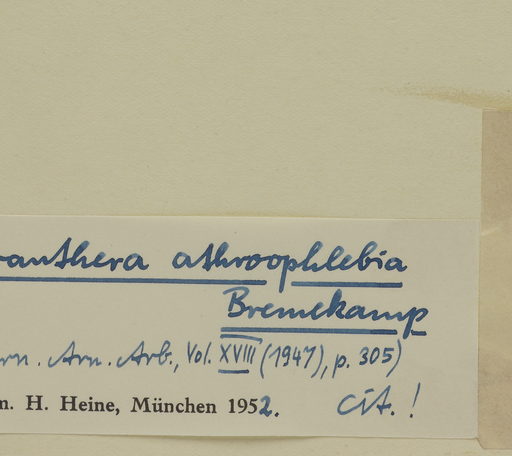 ranthera athroophlebia
Bremekamp
rn. Arn. Arb., Vol. XVIII (1947), p. 305)
m. H. Heine, München 1952. cit.!